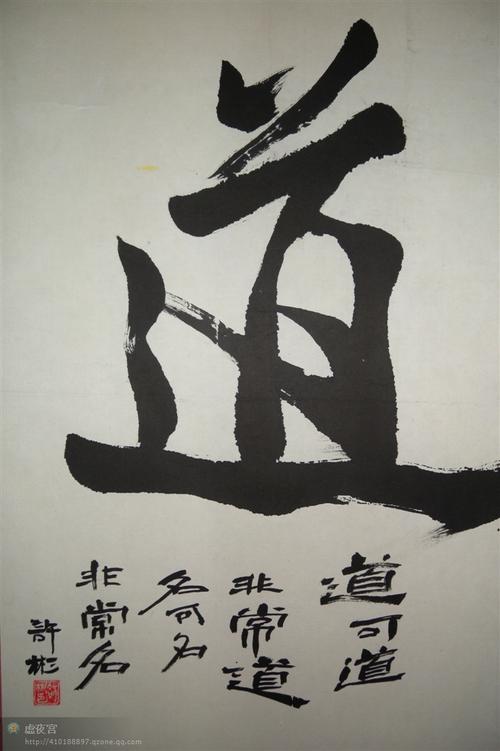 道
道可道
非常道
名可名
非常名
許彬
虚夜宫
http://410188897.qzone.qq.com